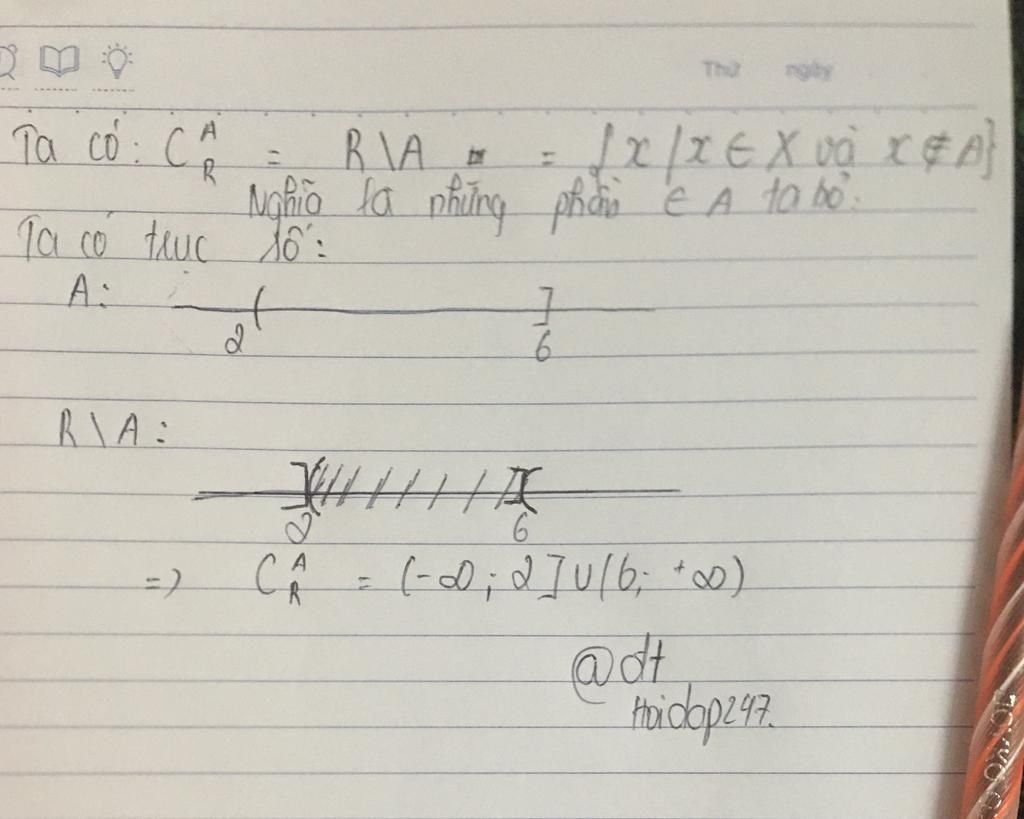 Thứ ngày
Ta có: C_R^A = R\A = {x/x ∈ X và x ∉ A}
Nghĩa là những phần ∈ A ta bỏ.
Ta có trục số:
A:
( ]
2 6
R\A:
] (
2 6
=> C_R^A = (-∞; 2] ∪ (6; +∞)
@dt
Hoidap247.